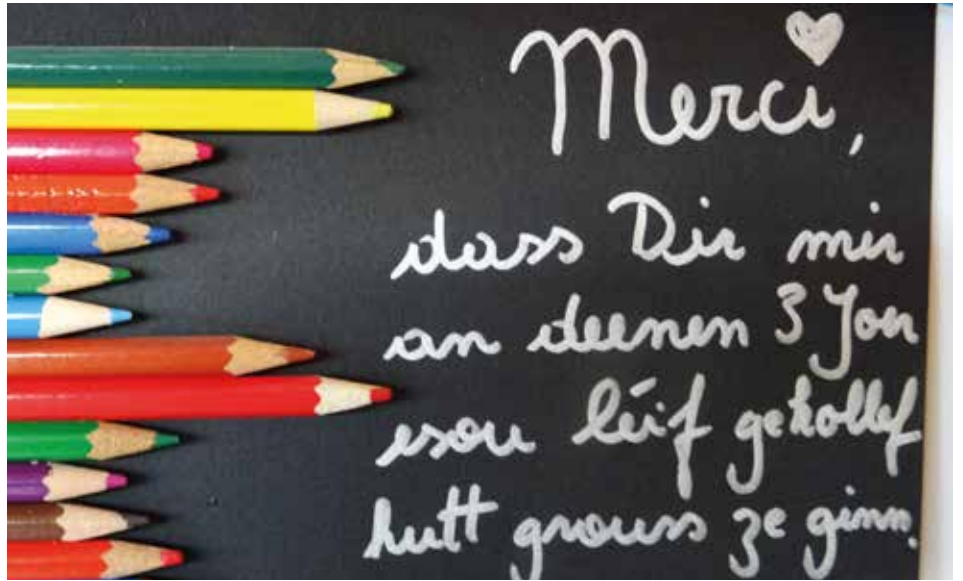 Merci,
dass Dir mir
an deenen 3 Joer
esou léif gehollef
hutt grouss ze ginn.